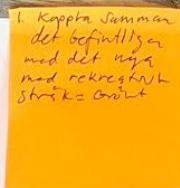 1. Koppla samman
det befintliga
med det nya
med rekreativt
stråk = Grönt